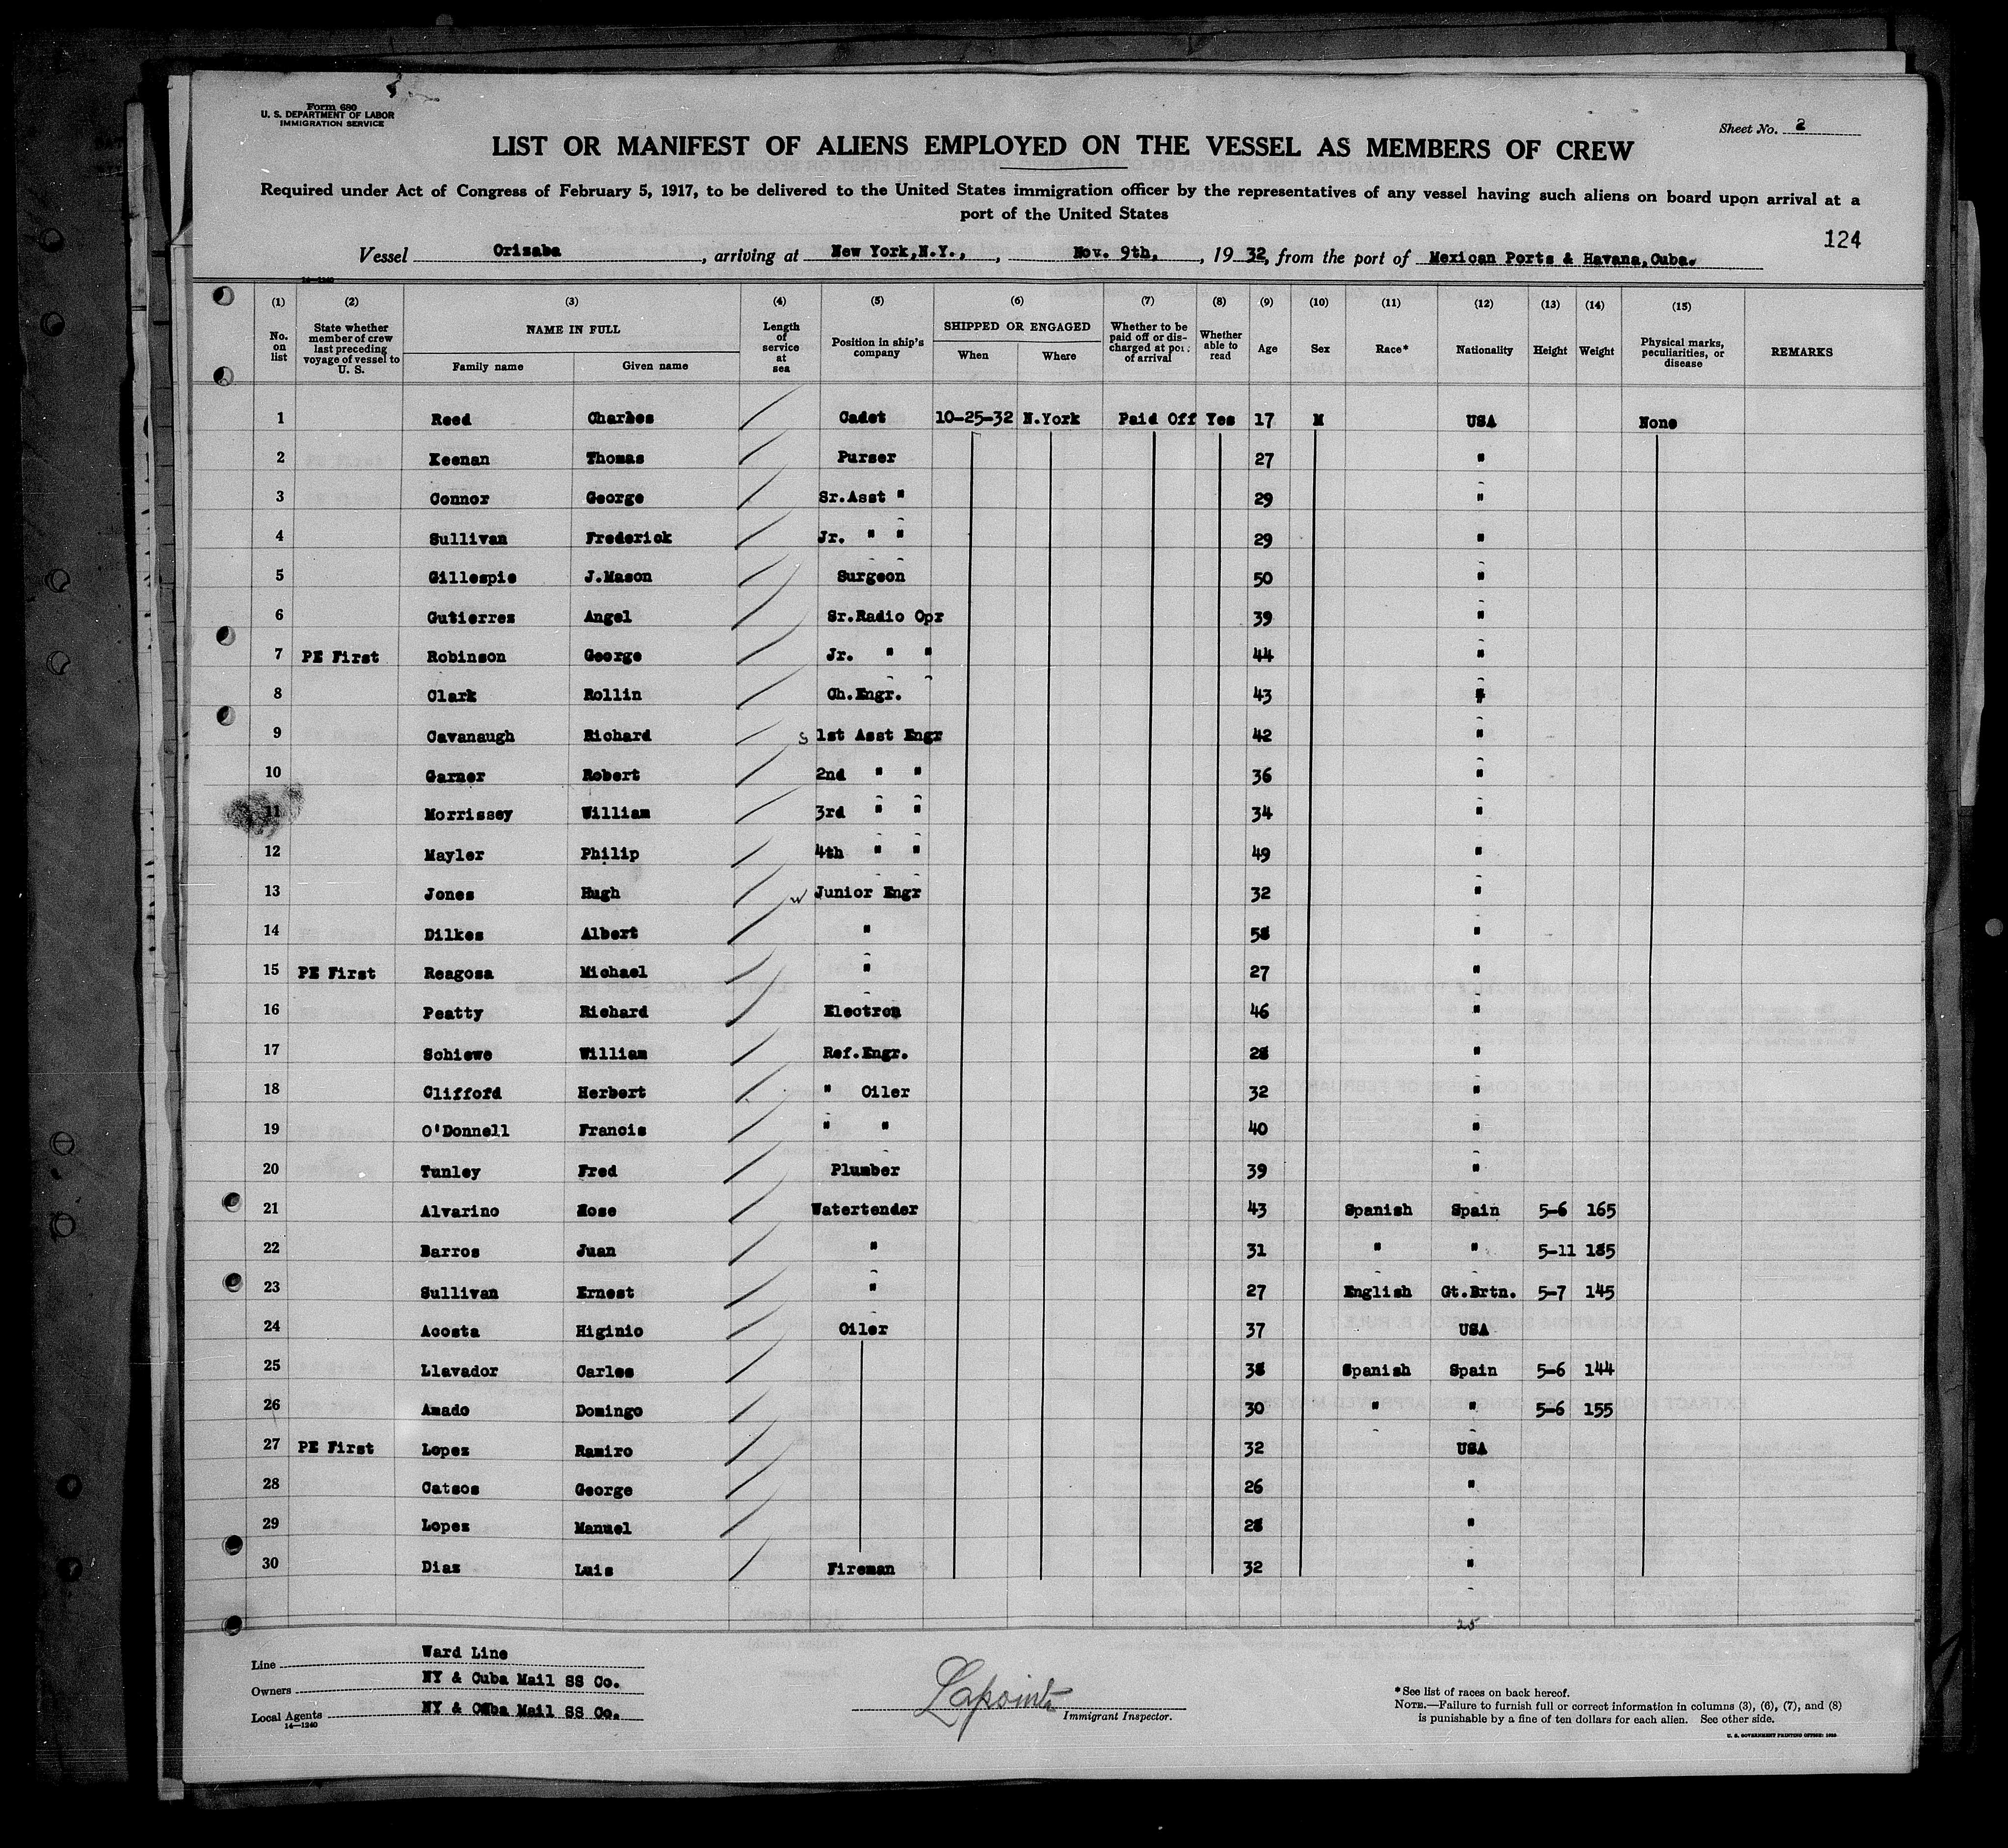 Form 680
U. S. DEPARTMENT OF LABOR
IMMIGRATION SERVICE
Sheet No. 2
LIST OR MANIFEST OF ALIENS EMPLOYED ON THE VESSEL AS MEMBERS OF CREW
Required under Act of Congress of February 5, 1917, to be delivered to the United States immigration officer by the representatives of any vessel having such aliens on board upon arrival at a
port of the United States
124
Vessel Orizaba, arriving at New York, N.Y., , Nov. 9th, , 19 32, from the port of Mexican Ports & Havana, Cuba.
14—1240
(1) (2) (3) (4) (5) (6) (7) (8) (9) (10) (11) (12) (13) (14) (15)
No. on list State whether member of crew last preceding voyage of vessel to U. S. NAME IN FULL Family name Given name Length of service at sea Position in ship's company SHIPPED OR ENGAGED When Where Whether to be paid off or discharged at port of arrival Whether able to read Age Sex Race* Nationality Height Weight Physical marks, peculiarities, or disease REMARKS
1 Reed Charles Cadet 10-25-32 N.York Paid Off Yes 17 M USA None
2 Keenan Thomas Purser 27 "
3 Connor George Sr.Asst " 29 "
4 Sullivan Frederick Jr. " " 29 "
5 Gillespie J.Mason Surgeon 50 "
6 Gutierrez Angel Sr.Radio Opr 39 "
7 PE First Robinson George Jr. " " 44 "
8 Clark Rollin Ch.Engr. 43 "
9 Cavanaugh Richard S 1st Asst Engr 42 "
10 Garner Robert 2nd " " 36 "
11 Morrissey William 3rd " " 34 "
12 Mayler Philip 4th " " 49 "
13 Jones Hugh W Junior Engr 32 "
14 Dilkes Albert " 58 "
15 PE First Reagosa Michael " 27 "
16 Peatty Richard Electron 46 "
17 Schiewe William Ref.Engr. 28 "
18 Clifford Herbert " Oiler 32 "
19 O'Donnell Francis " " 40 "
20 Tunley Fred Plumber 39 "
21 Alvarino Jose Watertender 43 Spanish Spain 5-6 165
22 Barros Juan " 31 " " 5-11 185
23 Sullivan Ernest " 27 English Gt.Brtn. 5-7 145
24 Acosta Higinio Oiler 37 USA
25 Llavador Carlos 38 Spanish Spain 5-6 144
26 Amado Domingo 30 " " 5-6 155
27 PE First Lopez Ramiro 32 USA
28 Catsos George 26 "
29 Lopez Manuel 28 "
30 Diaz Luis Fireman 32 "
25
Line Ward Line
Owners NY & Cuba Mail SS Co.
Local Agents NY & Cuba Mail SS Co.
14—1240
Lapointe
Immigrant Inspector.
*See list of races on back hereof.
NOTE.—Failure to furnish full or correct information in columns (3), (6), (7), and (8)
is punishable by a fine of ten dollars for each alien. See other side.
U. S. GOVERNMENT PRINTING OFFICE: